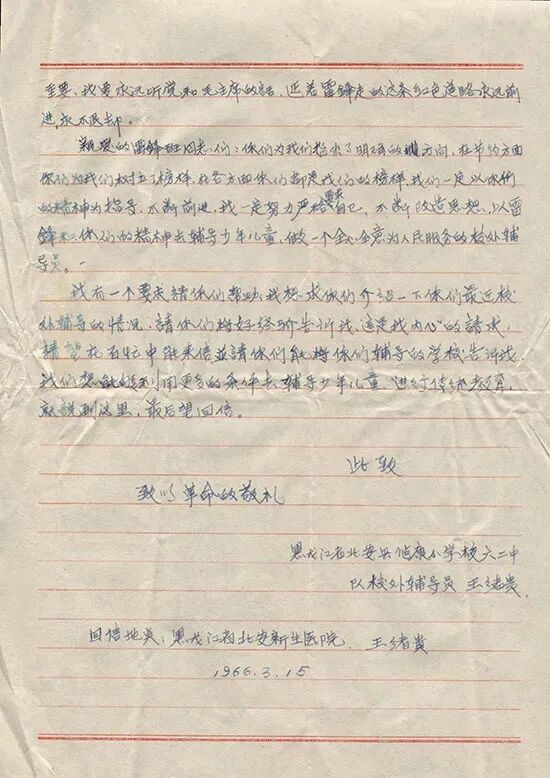 重要，我要永远听党和毛主席的話，沿着雷锋走的这条红色道路永远前
进，永不退却。
親爱的雷锋班同志们：你们为我们指出了明确的方向，在节约方面
你们为我们树立了榜样，在各方面你们都是我们的榜样，我们一定以你们
的精神为指导，不断前进，我一定努力严格要求自己，不断改造思想，以雷
锋和你们的精神去辅导少年儿童，做一个全心全意为人民服务的校外辅
导员。
我有一个要求請你们帮助，我想求你们介绍一下你们最近校
外辅导的情况，請你们将好经验告訴我，這是我内心的請求，
希望在百忙中能来信並請你们能将你们辅导的学校告訴我，
我们想能够利用更多的条件去辅导少年儿童，进行传统教育，
就說到这里，最后望回信。
此致
致以革命的敬礼
黑龙江省北安县健康小学校六二中
队校外辅导员 王绪贵
回信地点：黑龙江省北安新生医院 王绪貴
1966.3.15